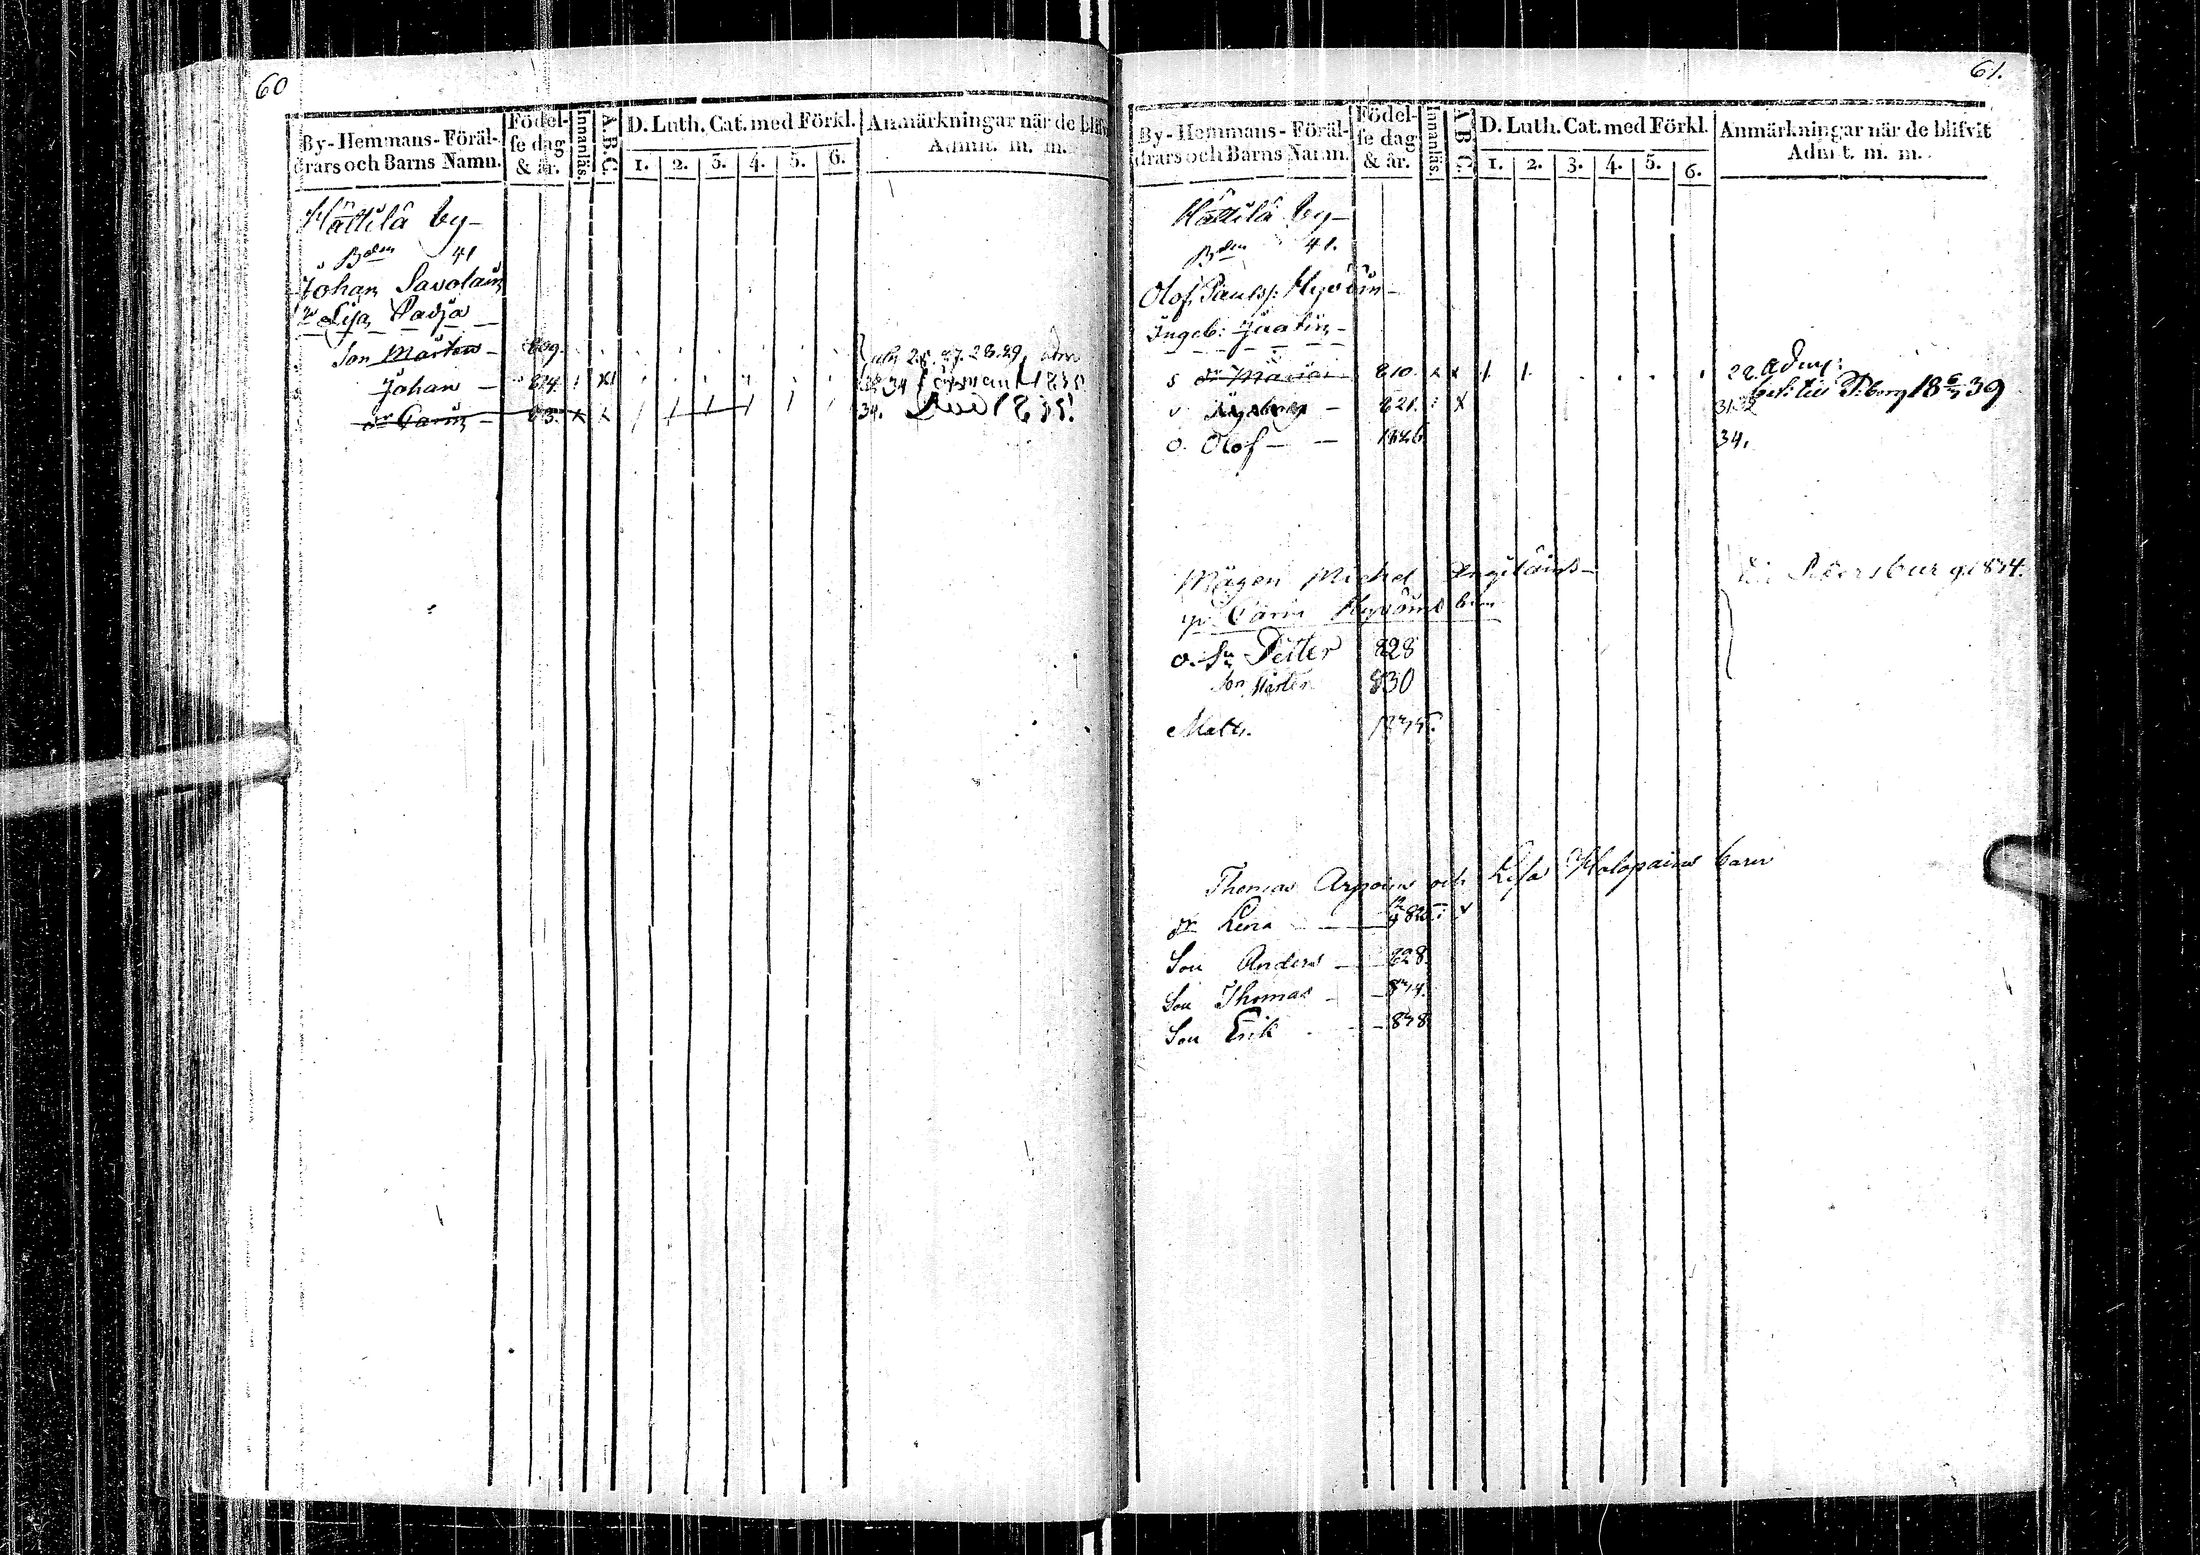 60
By-Hemmans-Föräl-
drars och Barns Namn.
Födel-
se dag
& år.
Innanläs.
A.B.C.
D. Luth. Cat. med Förkl.
1. 2. 3. 4. 5. 6.
Anmärkningar när de blifv
Admit. m. m.
Hättilä by-
Bdm 41
Johan Savolain
Lisa Padja
Son Mårten - 809.
Johan - 824.
dr Carin -
34. Död 1835!
61.
By-Hemmans-Föräl-
drars och Barns Namn.
Födel-
se dag
& år.
Innanläs.
A.B.C.
D. Luth. Cat. med Förkl.
1. 2. 3. 4. 5. 6.
Anmärkningar när de blifvit
Admit. m. m.
Hättilä by-
Bdm 41.
Olof Paulss: Hyvön-
Ingeb: Jaatin-
s dr Maria 810. x x 22. Adm:
Ingeborg - 821. x 31.32
o. Olof - - 1826 34.
Mågen Michel
Carin Hyvöns barn
Petersburg 1834.
o. Sn Peiter 828
Son Mårten 830
Matts.
Thomas Arpoins och Lisa Holopains barn
dr Lena
Son Anders - 828.
Son Thomas - 834.
Son Erik - 838